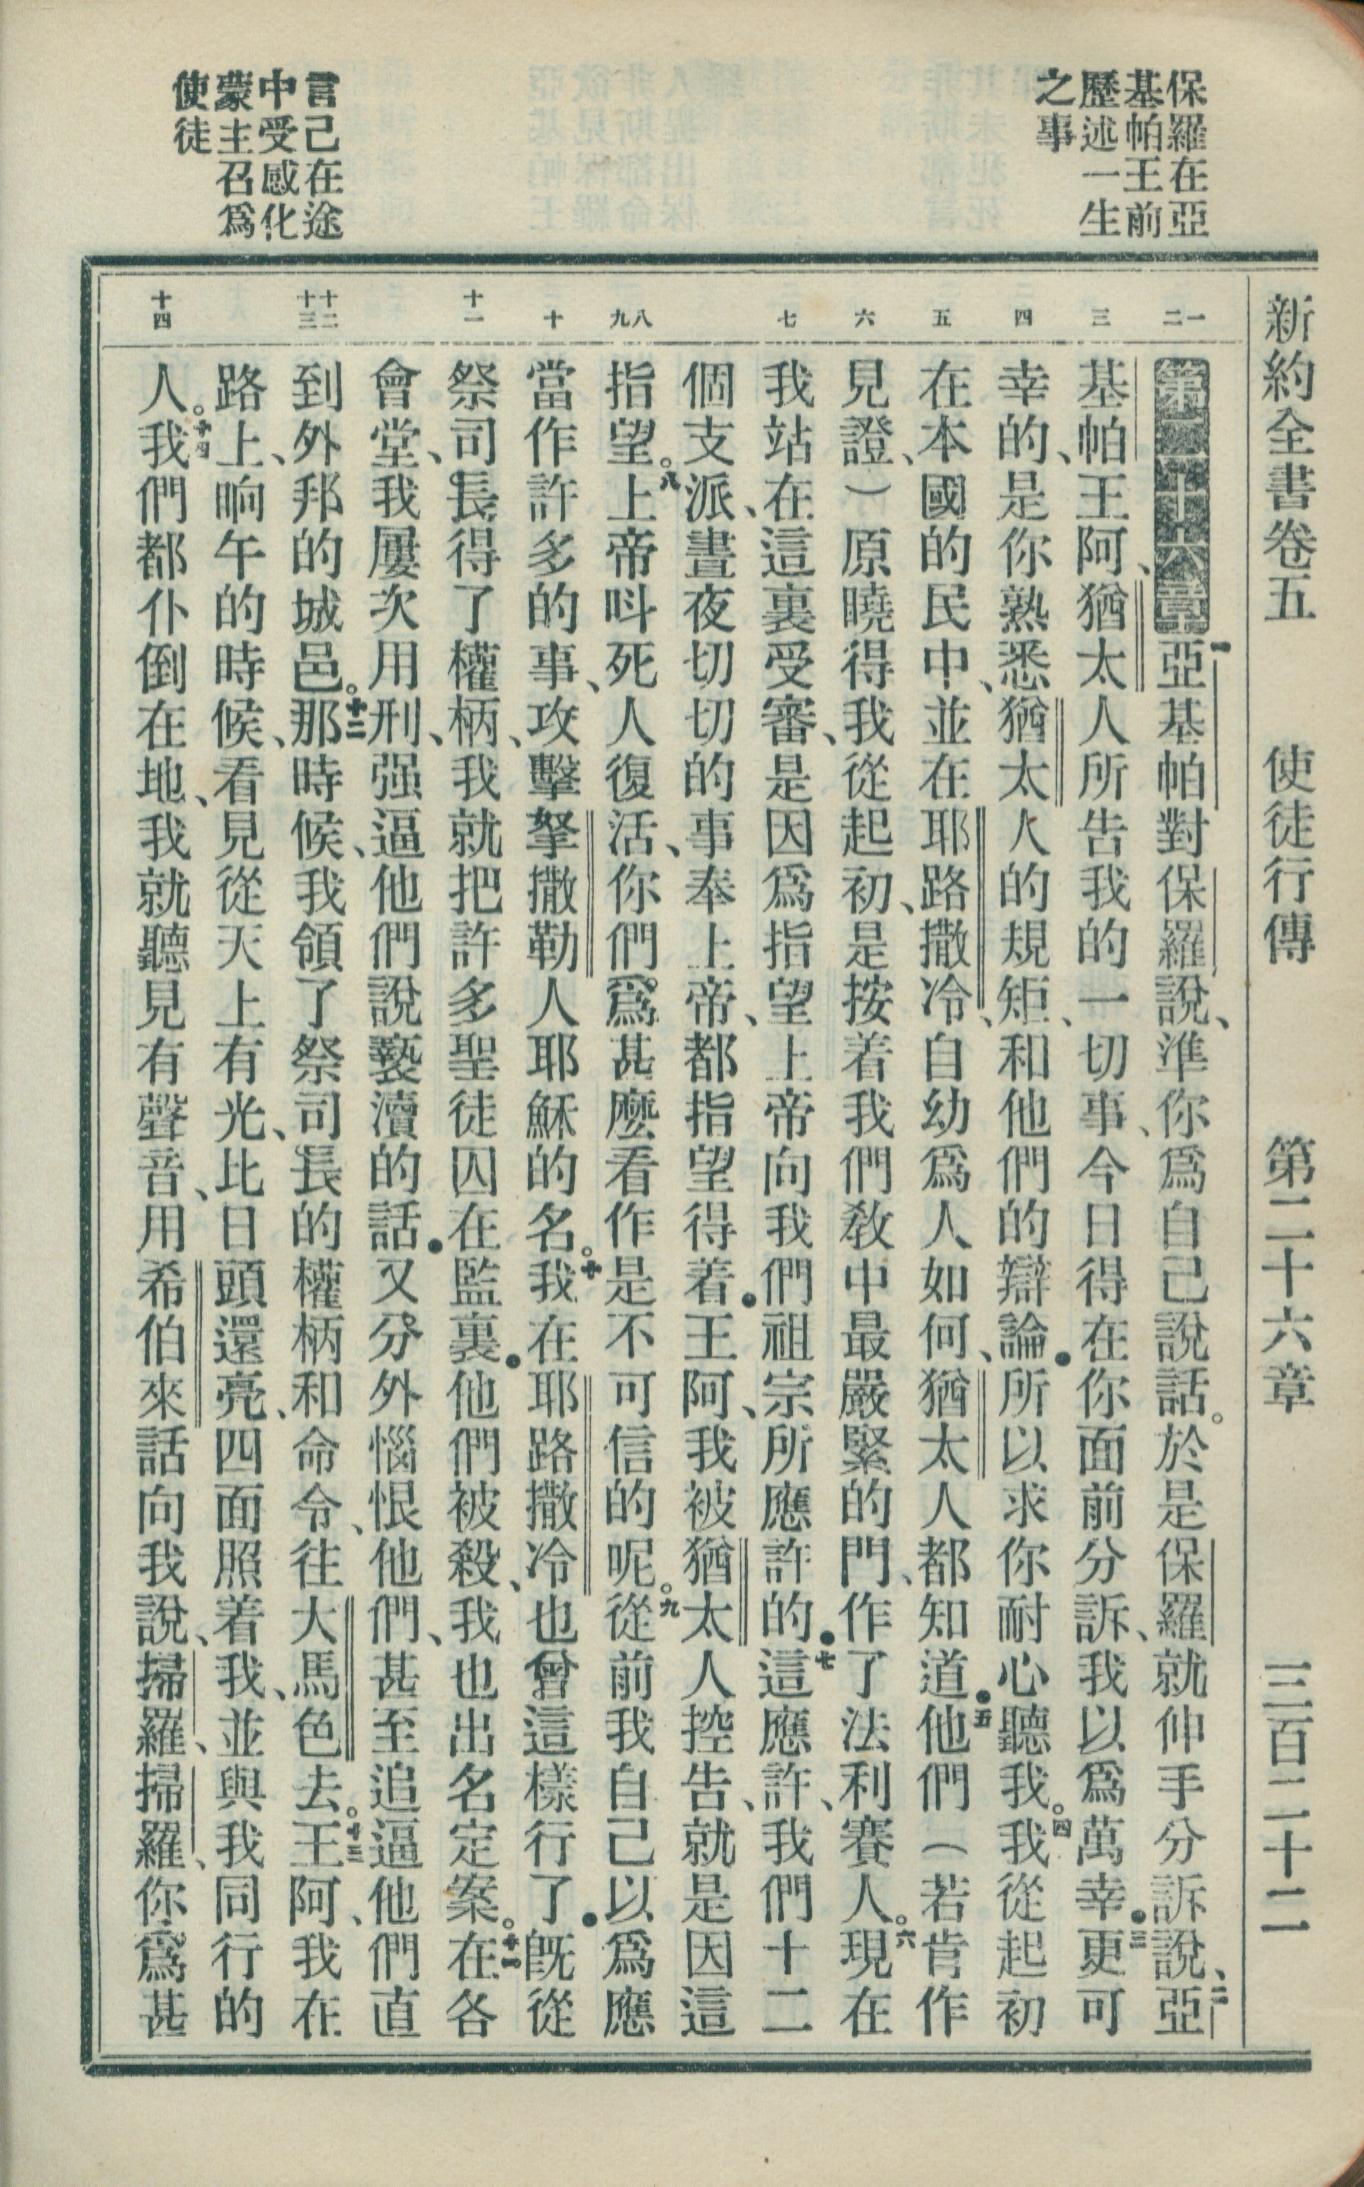 新約全書卷五　使徒行傳　第二十六章　三百二十二
保羅在亞
基帕王前
歷述一生
之事
言己在途
中受感化
蒙主召爲
使徒
一
二
三
四
五
六
七
八
九
十
十一
十二
十三
十四
第二十六章一亞基帕對保羅說、準你爲自己說話。於是保羅就伸手分訴說、二亞
基帕王阿、猶太人所告我的一切事、今日得在你面前分訴、我以爲萬幸●三更可
幸的、是你熟悉猶太人的規矩、和他們的辯論●所以求你耐心聽我。四我從起初
在本國的民中、並在耶路撒冷、自幼爲人如何、猶太人都知道●五他們（若肯作
見證、）原曉得我從起初、是按着我們敎中最嚴緊的門、作了法利賽人。六現在
我站在這裏受審、是因爲指望上帝向我們祖宗所應許的●七這應許、我們十二
個支派、晝夜切切的事奉上帝、都指望得着●王阿、我被猶太人控告、就是因這
指望。八上帝呌死人復活、你們爲甚麽看作是不可信的呢。九從前我自己以爲應
當作許多的事、攻擊拏撒勒人耶穌的名。十我在耶路撒冷也曾這樣行了●旣從
祭司長得了權柄、我就把許多聖徒囚在監裏●他們被殺、我也出名定案。十一在各
會堂、我屢次用刑、强逼他們說褻瀆的話●又分外惱恨他們、甚至追逼他們直
到外邦的城邑。十二那時候、我領了祭司長的權柄和命令、往大馬色去。十三王阿、我在
路上、晌午的時候、看見從天上有光、比日頭還亮、四面照着我、並與我同行的
人。十四我們都仆倒在地、我就聽見有聲音、用希伯來話向我說、掃羅、掃羅、你爲甚